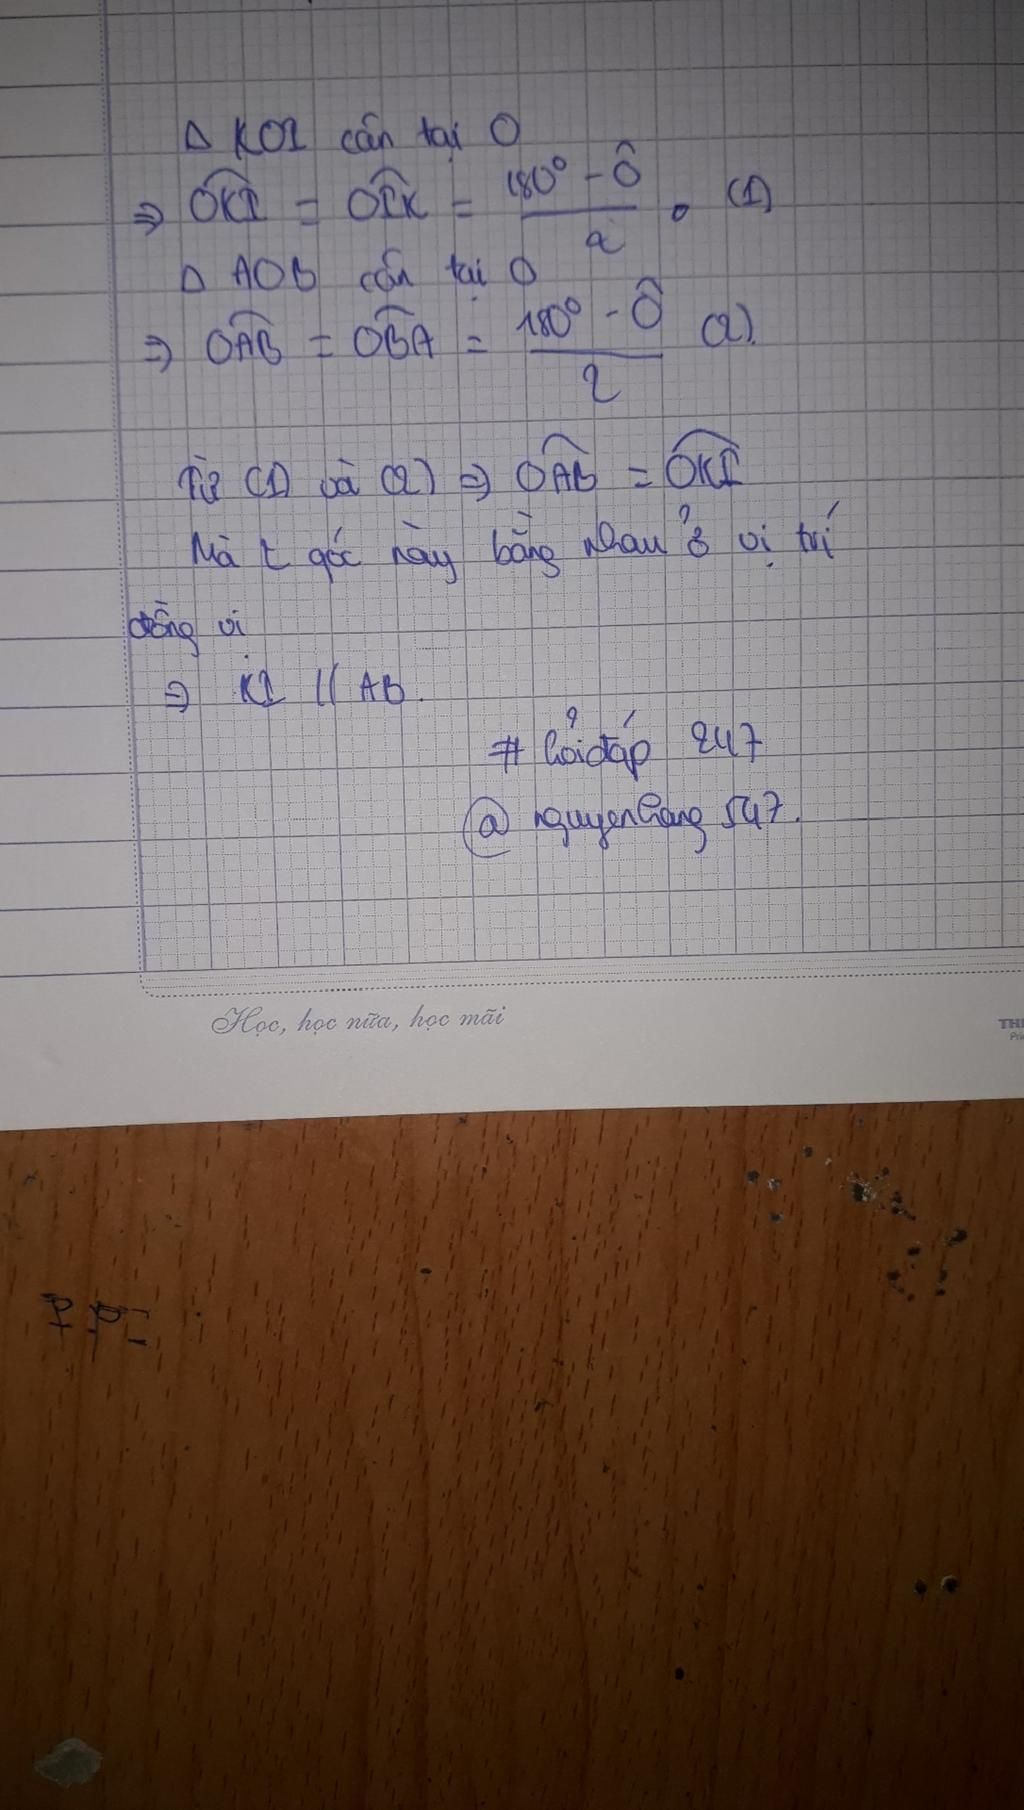 Δ KOI cân tại O
⇒ OKI = OIK = (180° - Ô)/2 . (1)
Δ AOB cân tại O
⇒ OAB = OBA = (180° - Ô)/2 (2).
Từ (1) và (2) ⇒ OAB = OKI
Mà 2 góc này bằng nhau ở vị trí
đồng vị
⇒ KI // AB.
# hỏi đáp 247
@ nguyenhang 547.
Học, học nữa, học mãi